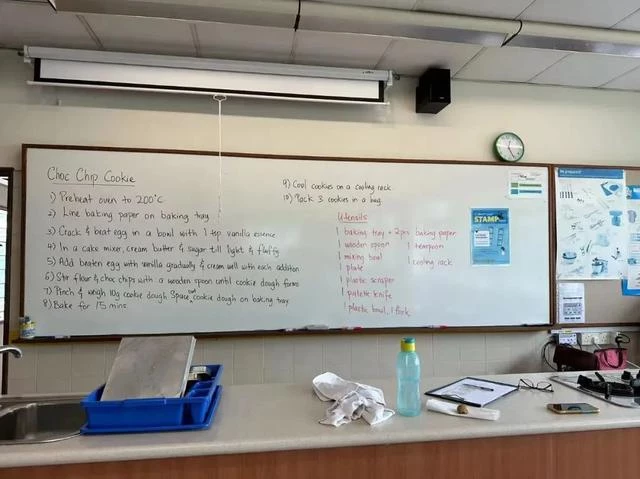 Choc Chip Cookie
1) Preheat oven to 200°C
2) Line baking paper on baking tray
3) Crack & beat egg in a bowl with 1 tsp vanilla essence
4) In a cake mixer, cream butter & sugar till light & fluffy
5) Add beaten egg with vanilla gradually & cream well with each addition
6) Stir flour & choc chips with a wooden spoon until cookie dough forms
7) Pinch & weigh 10g cookie dough. Space out cookie dough on baking tray
8) Bake for 15 mins
9) Cool cookies on a cooling rack
10) Pack 3 cookies in a bag
Utensils
1 baking tray + 2pcs baking paper
1 wooden spoon 1 teaspoon
1 mixing bowl 1 cooling rack
1 plate
1 plastic scraper
1 palette knife
1 plastic bowl, 1 fork
STAMP